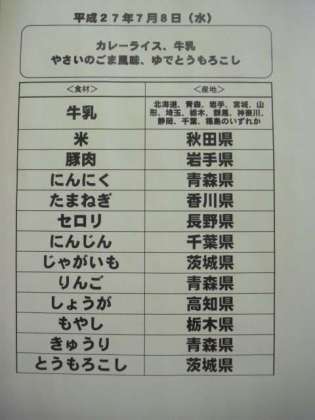 平成27年7月8日（水）
カレーライス、牛乳
やさいのごま風味、ゆでとうもろこし
＜食材＞ ＜産地＞
牛乳 北海道、青森、岩手、宮城、山
形、埼玉、栃木、群馬、神奈川、
静岡、千葉、福島のいずれか
米 秋田県
豚肉 岩手県
にんにく 青森県
たまねぎ 香川県
セロリ 長野県
にんじん 千葉県
じゃがいも 茨城県
りんご 青森県
しょうが 高知県
もやし 栃木県
きゅうり 青森県
とうもろこし 茨城県